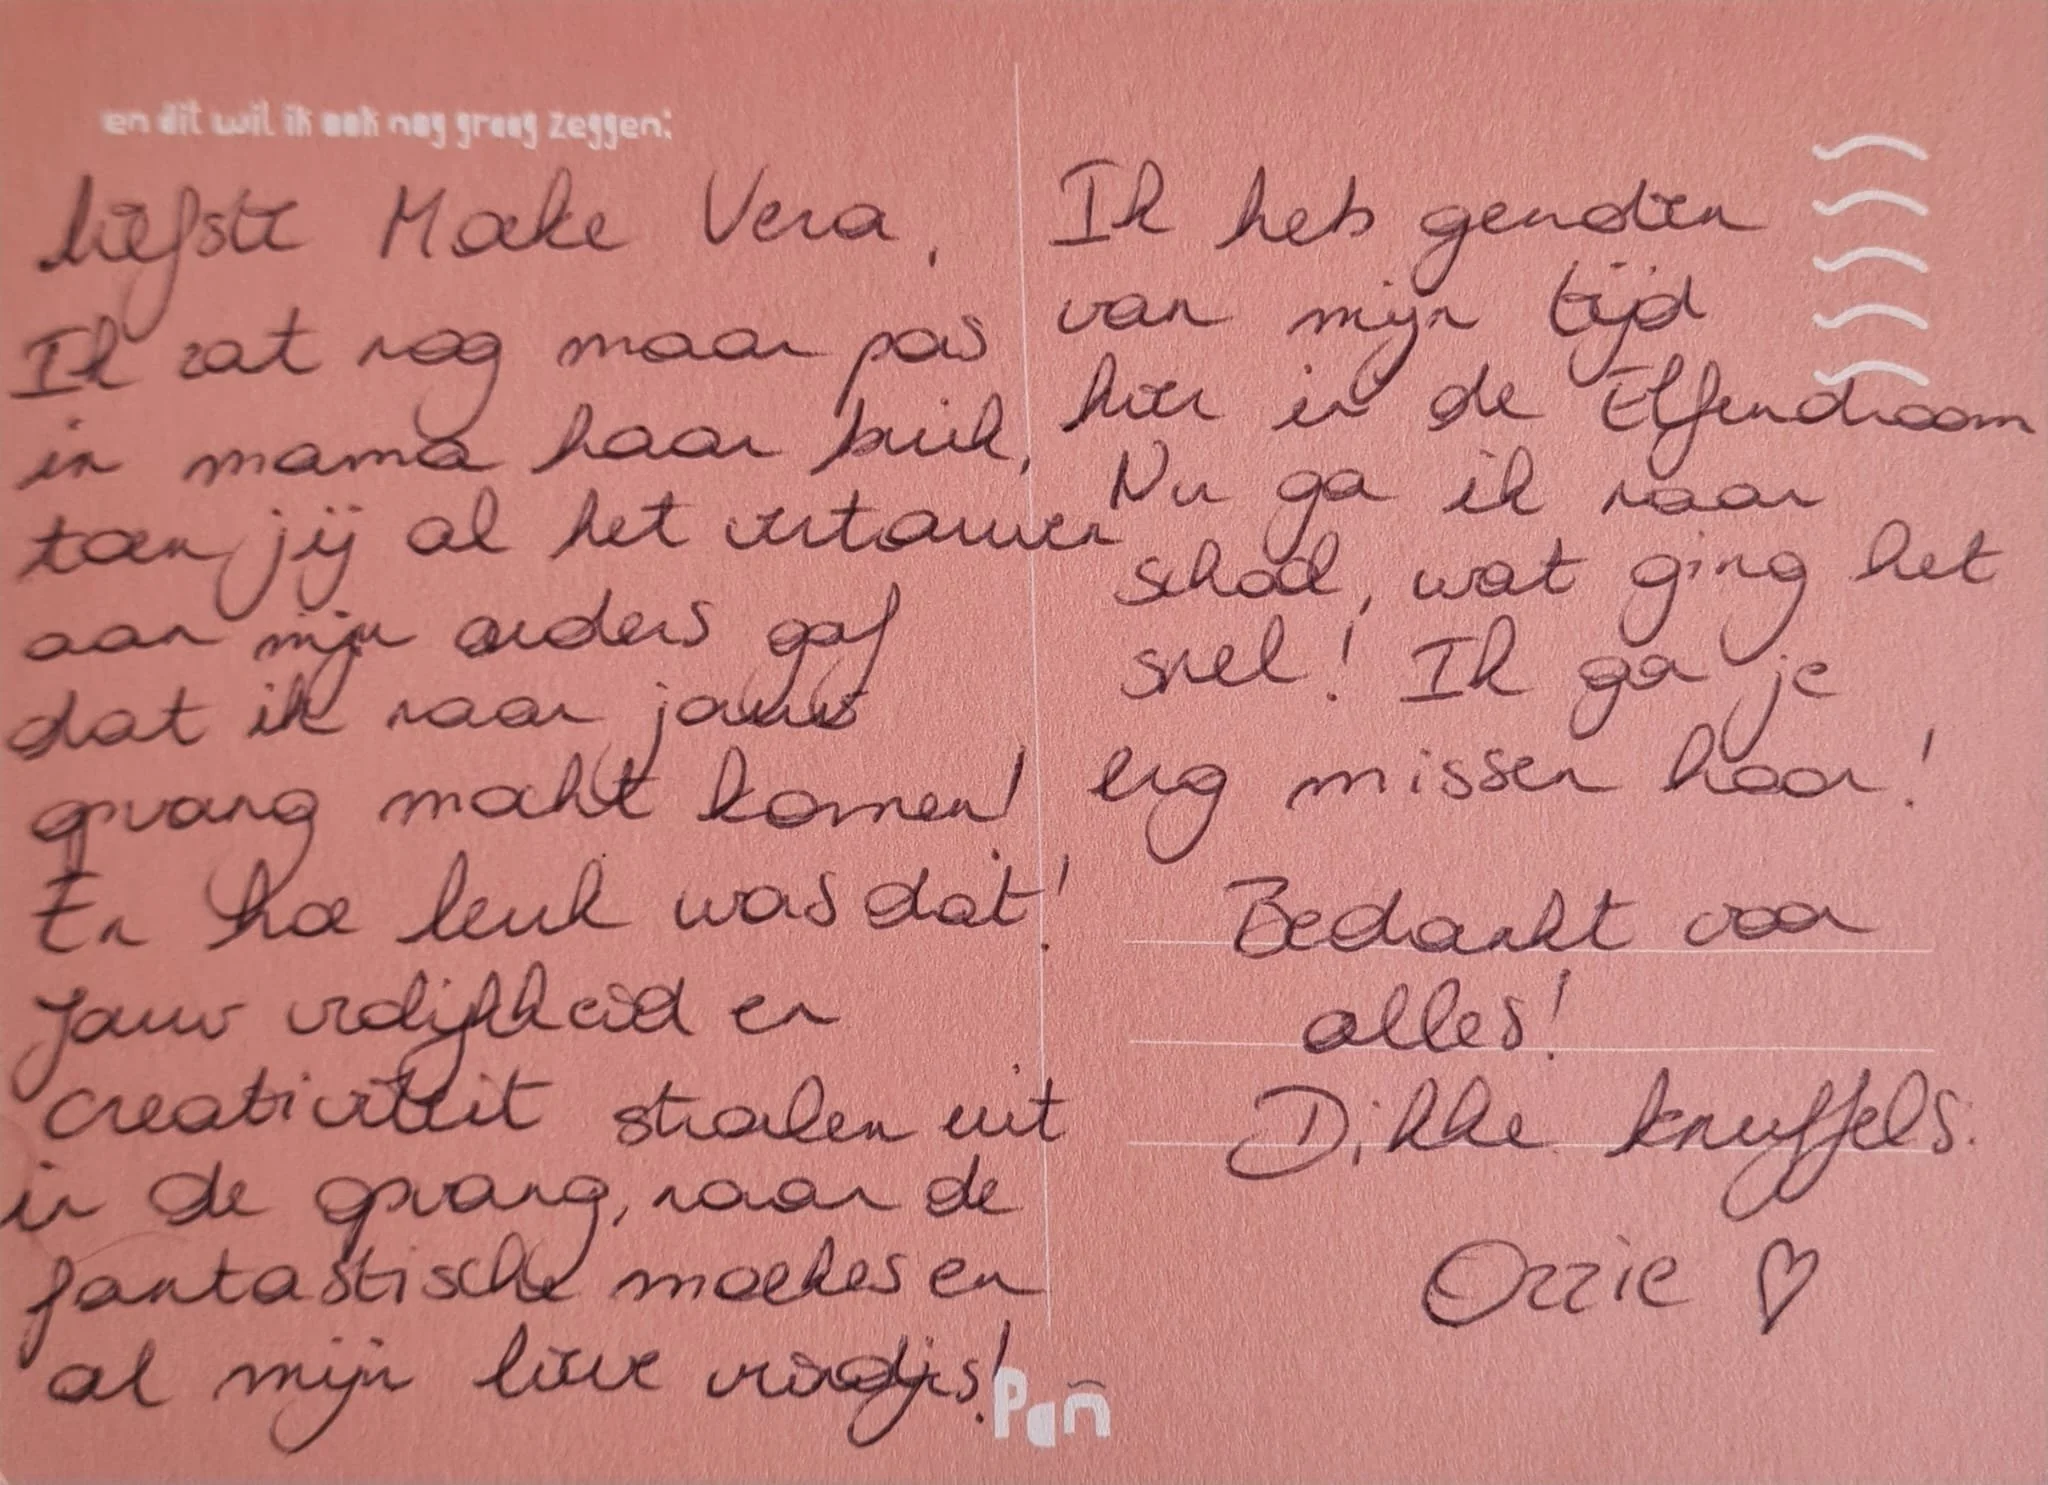 en dit wil ik ook nog graag zeggen:
liefste Moeke Vera,
Ik zat nog maar pas
in mama haar buik,
toen jij al het vertouwen
aan mijn ouders gaf
dat ik naar jouw
opvang mocht komen!
En hoe leuk was dat!
Jouw vrolijkheid en
creativiteit stralen uit
in de opvang, naar de
fantastische moekes en
al mijn lieve vriendjes!
Ik heb genoten
van mijn tijd
hier in de Elfendroom
Nu ga ik naar
school, wat ging het
snel! Ik ga je
erg missen hoor!
Bedankt voor
alles!
Dikke knuffels.
Ozzie ♡
Pan̄